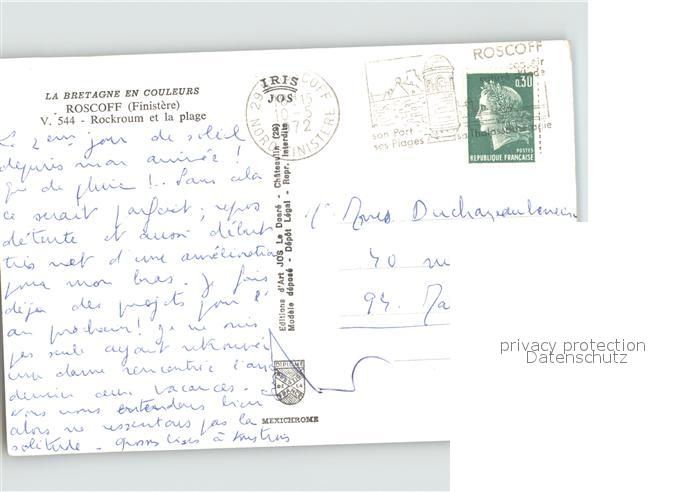 LA BRETAGNE EN COULEURS
ROSCOFF (Finistère)
V. 544 - Rockroum et la plage
Le 2em jour de soleil
depuis mon arrivée !
que de pluie !.. Sans cela
ce serait parfait ; repos
détente et aussi début
très net d'une amélioration
pour mon bras. Je fais
déjà des projets pour l'
an prochain ! Je ne suis
pas seule ayant retrouvée
une dame rencontrée l'an
dernier aux vacances.
nous nous entendons bien
alors ne ressentons pas la
solitude. Grosses bises à tous trois
IRIS
JOS
Editions d'Art JOS Le Doaré - Châteaulin (29)
Modèle déposé - Dépôt Légal - Repr. Interdite
MEXICHROME
29 ROSCOFF
1972
NORD FINISTERE
ROSCOFF
son Port
ses Plages
sa Thalassothérapie
0,30
POSTES
REPUBLIQUE FRANÇAISE
40
94.
privacy protection
Datenschutz